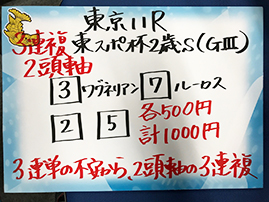 東京11R
3連複 東スポ杯2歳S(GⅢ)
2頭軸
3 ワグネリアン 7 ルーロス
2 5 各500円
計1000円
3連単の不安から、2頭軸の3連複